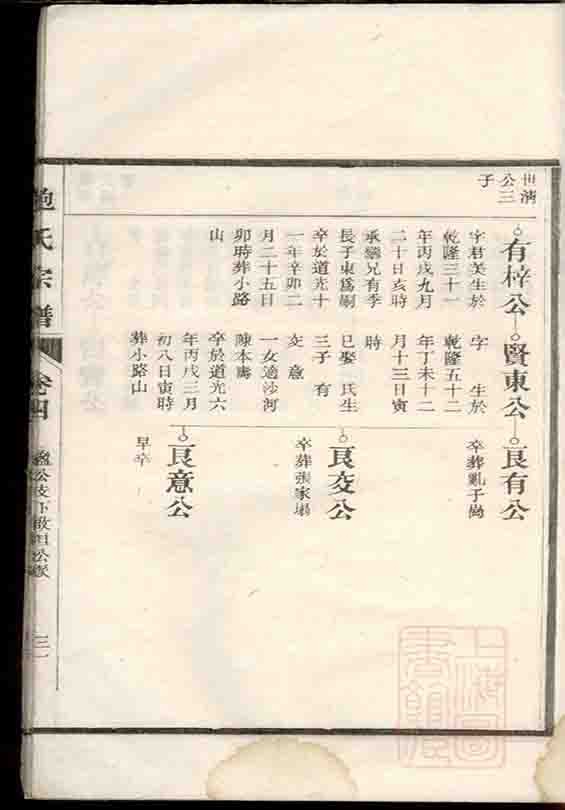 世清
公三
子
有梓公
字君美生於
乾隆三十一
年丙戌九月
二十日亥時
承繼兄有季
長子東為嗣
卒於道光十
一年辛卯二
月二十五日
卯時葬小路
山
賢東公
字 生於
乾隆五十二
年丁未十二
月十三日寅
時
已娶 氏生
三子 有
交 意
一女適沙河
陳本
卒於道光六
年丙戌三月
初八日寅時
葬小路山
良有公
卒葬亂子崗
良交公
卒葬張家塌
良意公
早卒
鮑氏宗譜
卷四
公支下
三一
上海圖書館